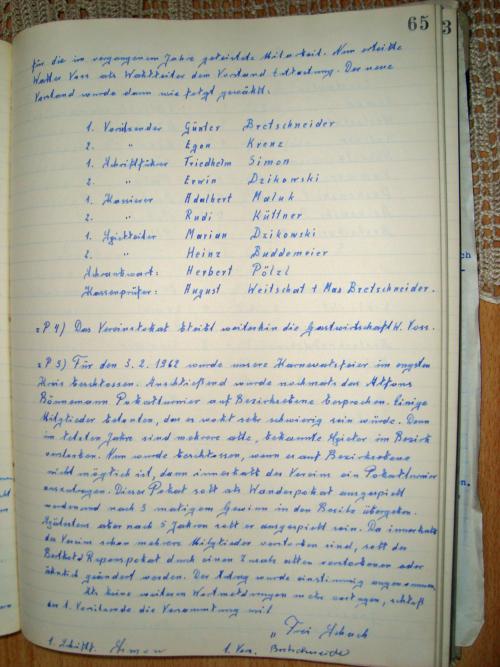 65
3
für die im vergangenem Jahre geleistete Mitarbeit. Nun erteilte
Walter Voss als Wahlleiter dem Vorstand Entlastung. Der neue
Vorstand wurde dann wie folgt gewählt:
1. Vorsitzender Günter Bretschneider
2. " Egon Krenz
1. Schriftführer Friedhelm Simon
2. " Erwin Dzikowski
1. Kassierer Adalbert Maluk
2. " Rudi Küttner
1. Spielleiter Marian Dzikowski
2. " Heinz Buddemeier
Schrankwart: Herbert Pölzl
Kassenprüfer: August Weitschat + Max Bretschneider.
zP 4) Das Vereinslokal bleibt weiterhin die Gastwirtschaft W. Voss.
zP 5) Für den 3. 2. 1962 wurde unsere Karnevalsfeier im engsten
Kreis beschlossen. Anschließend wurde nochmals das Alfons
Bönnemann Pokalturnier auf Bezirksebene besprochen. Einige
Mitglieder betonten, das es wohl sehr schwierig sein würde. Denn
im letzten Jahre sind mehrere alte, bekannte Spieler im Bezirk
verstorben. Nun wurde beschlossen, wenn es auf Bezirksebene
nicht möglich ist, dann innerhalb des Vereins ein Pokalturnier
auszutragen. Dieser Pokal soll als Wanderpokal ausgespielt
werden und nach 3 maligem Gewinn in den Besitz übergehen.
Spätestens aber nach 5 Jahren soll er ausgespielt sein. Da innerhalb
des Vereins schon mehrere Mitglieder verstorben sind, soll der
durch einen Namen aller verstorbenen oder
ähnlich geändert werden. Der Antrag wurde einstimmig angenommen.
Als keine weiteren Wortmeldungen mehr vorlagen, schloß
der 1. Vorsitzende die Versammlung mit
"Frei Schach
1. Schriftf. Simon 1. Vors. Bretschneider